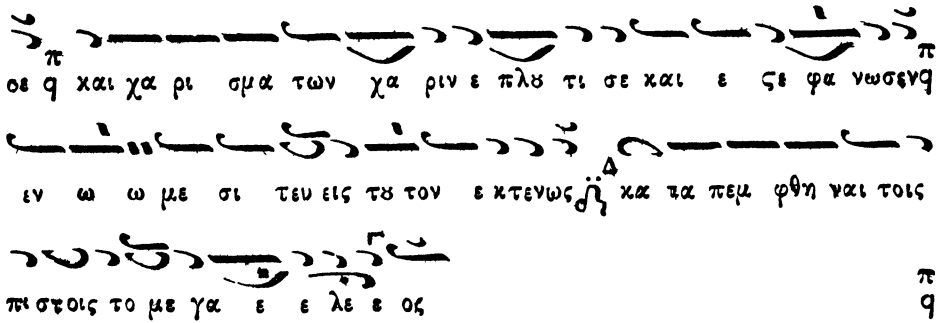 π π
σε q και χα ρι σμα των χα ριν ε πλȣ τι σε και ε ϛε φα νωσεν q
Δ
εν ω ω με σι τευ εις τȣ τον ε κτενως κα τα πεμ φθη ναι τοις
π
πι στοις το με γα ε ε λε ε ος q